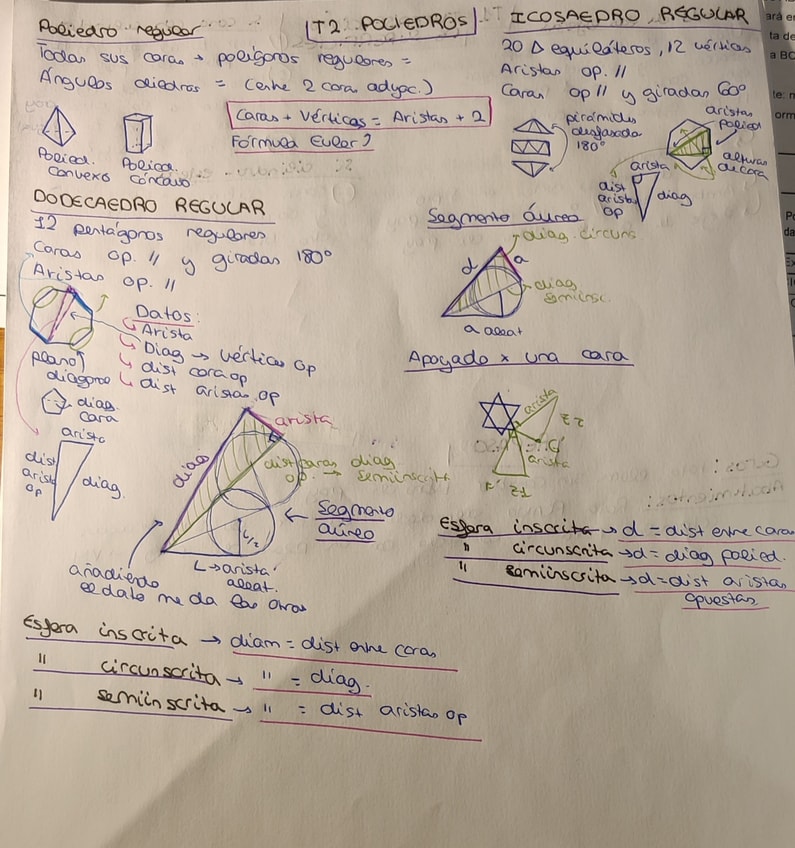 Poliedro regular
T2 POLIEDROS
Todas sus caras → polígonos regulares =
Ángulos diedros = (entre 2 cara adyac.)
Caras + Vértices = Aristas + 2
Fórmula Euler?
Polied. convexo
Polied. cóncavo
DODECAEDRO REGULAR
12 pentágonos regulares
Caras op. // y giradas 180°
Aristas op. //
Datos:
Arista
Diag → vértices op
dist cara op
dist aristas op
plano diagonal
diag. cara
arista
dist arista op
diag.
arista
diag
dist caras op. → diag semiinscrit.
Segmento áureo
L/2
L → arista aleat.
añadiendo el dato me da las otras
Esfera inscrita → diam = dist entre caras
" circunscrita → " = diag.
" semiinscrita → " = dist aristas op
ICOSAEDRO REGULAR
20 Δ equiláteros, 12 vértices
Aristas op. //
Caras op // y giradas 60°
pirámides desfasadas 180°
aristas polied
alturas de cara
arista
dist arista op
diag
Segmento áureo
diag. circuns
d
a
diag semiinsc.
a aleat
Apoyado x una cara
arista
arista
Esfera inscrita → d = dist entre caras
" circunscrita → d = diag polied.
" semiinscrita → d = dist aristas opuestas